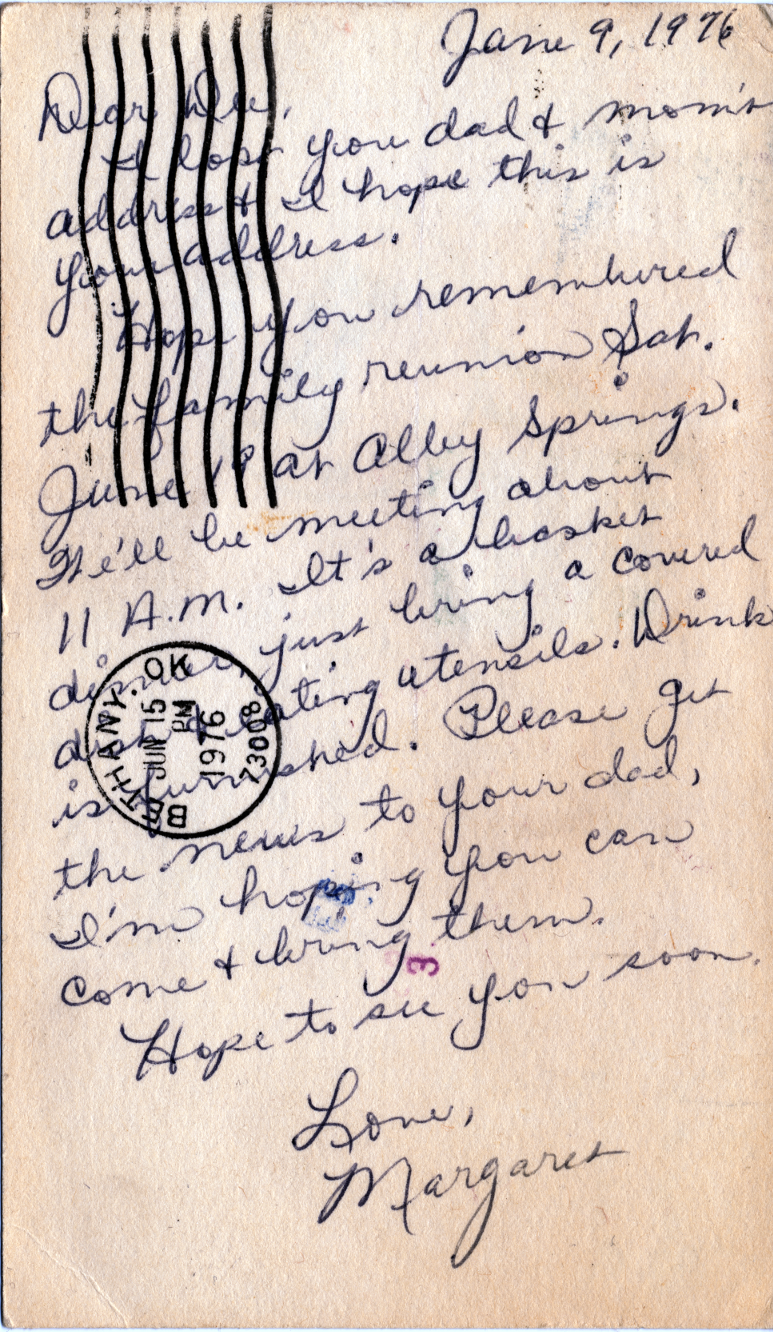 June 9, 1976
Dear Dee,
I lost you dad & mom's
address & I hope this is
your address.
Hope you remembered
the family reunion Sat.
June 19 at Alley Springs.
We'll be meeting about
11 A.M. It's a basket
dinner, just bring a covered
dish & eating utensils. Drink
is furnished. Please get
the news to your dad,
I'm hoping you can
come & bring them.
Hope to see you soon.
Love,
Margaret
BETHANY, OK
JUN 15
PM
1976
73008
3